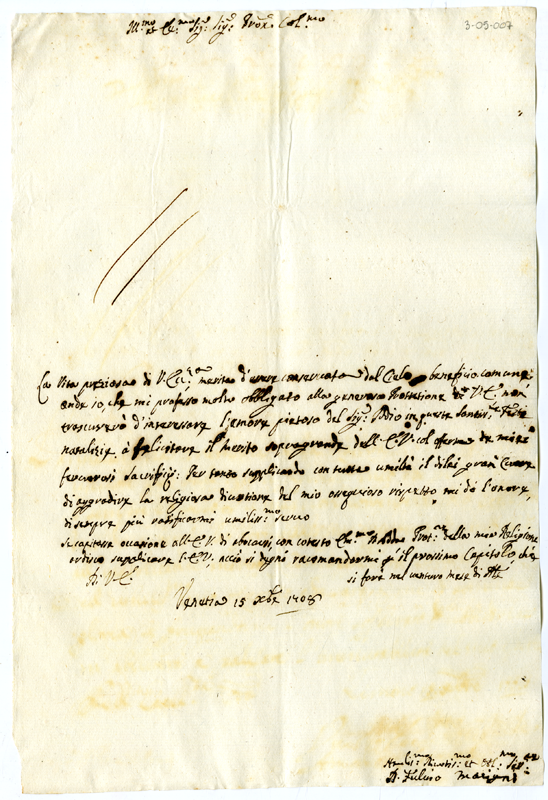 3-05-007
Ill.mo et Ecc.mo Sig.r Sig.r Pron. Col.mo
La Vita preziosa di V. Ecc.za merita d'essere conservata dal Cielo beneficio comune
onde io, che mi professo molto obbligato alla generosa Protettione di V.E. non
trascurerò d'interessare l'amore pietoso del Sig.r Iddio in queste Santiss.e Feste
natalizie à felicitare il merito sopragrande dell'E.V. col offerta de miei
fervorosi Sacrifizij: Per tanto supplicando con tutta umiltà il di lei gran Cuore
di aggradire la religiosa divotione del mio ossequioso rispetto mi dò l'onore,
di sempre più ratificarmi umiliss.mo servo
se capitasse occasione all'E.V. di abocarsi, con cotesto Padre della mia Religione
ardisco supplicare l'E.V. acciò si degni racomandarmi il prossimo Capitolo, che
si farà nel venturo mese di
Di V.E.
Venetia 15 Xbre 1708
Humiliss.mo et
Marioni